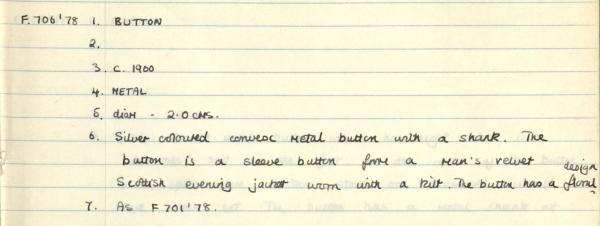 F.706'78 1. BUTTON
2.
3. C. 1900
4. METAL
5. diam - 2.0 cms.
6. Silver coloured convex metal button with a shank. The
button is a sleeve button from a man's velvet
Scottish evening jacket worn with a kilt. The button has a floral design
7. As F 701'78.